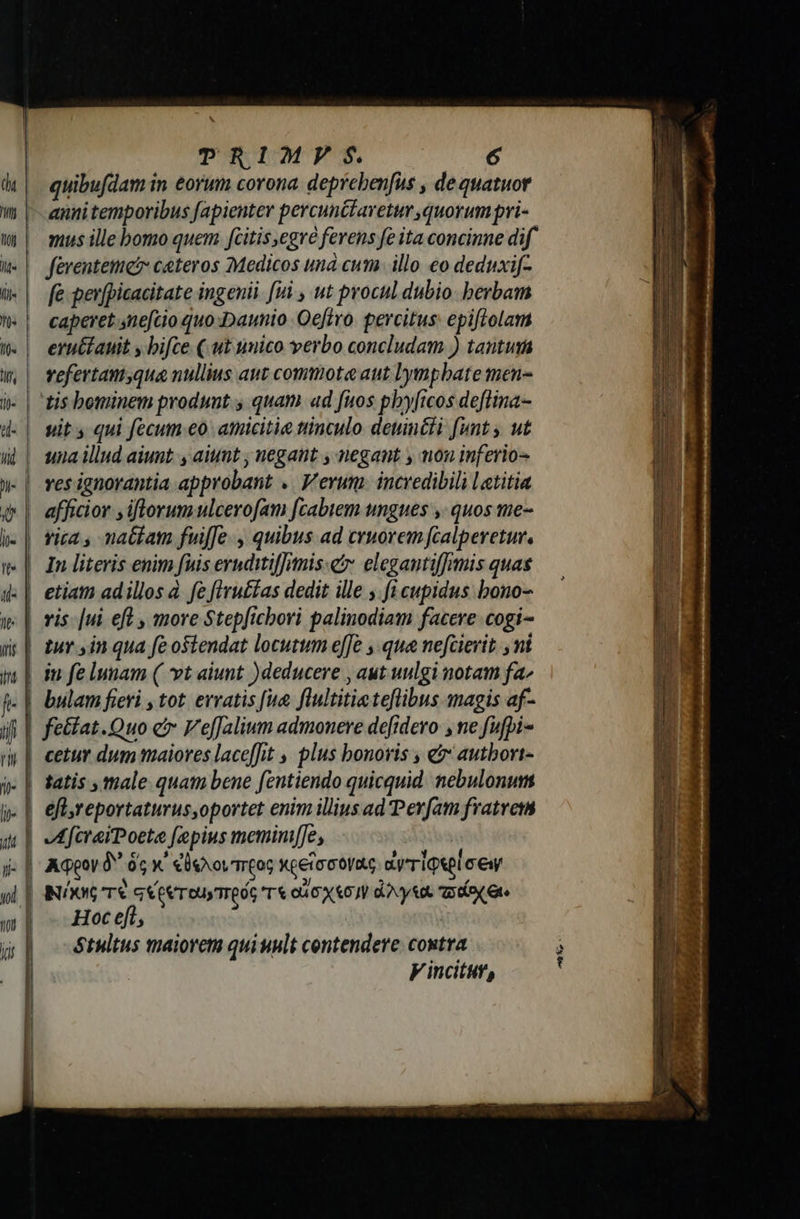 PRIMVS. 6
quibuſdam in eorum corona deprehenſus, de quatuor
anni temporibus ſapienter percunctaretur, quorum pri-
mus ille homo quem ſcitis, egrè ferens ſe ita concinne diſ
ſerentem & cæteros Medicos unà cum illo eo deduxiſ-
ſe perſpicacitate ingenii ſui, ut procul dubio herbam
caperet, neſcio quo Daunio Oeſtro percitus epiſtolam
eructauit, hiſce (ut unico verbo concludam) tantum
refertam, quæ nullius aut commotæ aut lymphatæ men-
tis hominem produnt, quam ad ſuos phyſicos deſtina-
uit, qui ſecum eo amicitiæ uinculo deuincti ſunt, ut
una illud aiunt, aiunt, negant, negant, non inferio-
res ignorantia approbant. Verum incredibili lætitia
afficior, iſtorum ulceroſam ſcabiem ungues, quos me-
rica, nactam fuiſſe, quibus ad cruorem ſcalperetur.
In literis enim ſuis eruditiſſimis & elegantiſſimis quas
etiam ad illos à ſe ſtructas dedit ille, ſi cupidus hono-
ris ſui eſt, more Stepſichori palinodiam facere cogi-
tur, in qua ſe oſtendat locutum eſſe, quæ neſcierit, ni
in ſe lunam (vt aiunt) deducere, aut uulgi notam fa-
bulam fieri, tot erratis ſuæ ſtultitiæ teſtibus magis af-
fectat. Quo & Veſſalium admonere deſidero, ne ſuſpi-
cetur dum maiores laceſſit, plus honoris, & authori-
tatis, male quam bene ſentiendo quicquid nebulonum
eſt, reportaturus, oportet enim illius ad Perſam fratrem
Aſcræi Poetæ ſæpius meminiſſe,
Ἄφρων δ' ὅς κ' ἐθέλοι πρὸς κρείσσονας ἀντιφερίσειν
Νίκης τε στέρεται, πρός τ' αἴσχεσιν ἄλγεα πάσχει.
Hoc eſt,
Stultus maiorem qui uult contendere contra
Vincitur,